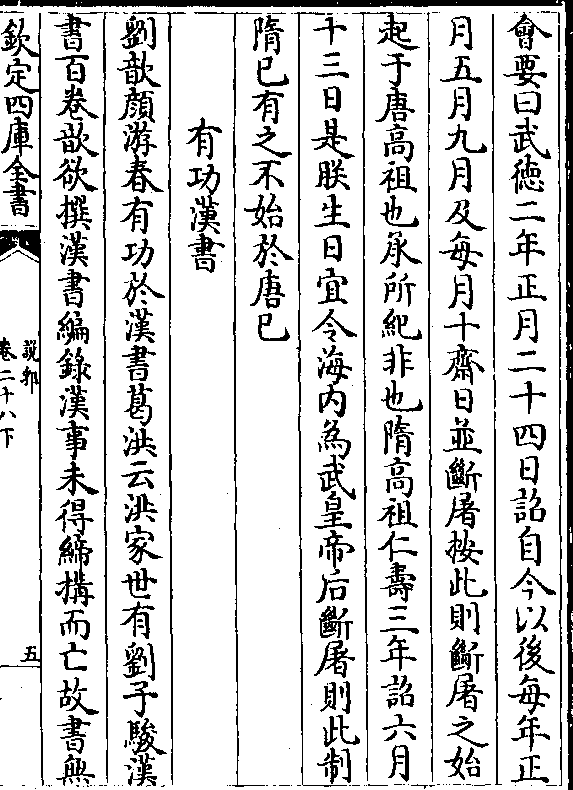 會要曰武德二年正月二十四日詔自今以後每年正
月五月九月及每月十齋日並斷屠按此則斷屠之始
起于唐高祖也承所紀非也隋高祖仁壽三年詔六月
十三日是朕生日宜令海内為武皇帝后斷屠則此制
隋已有之不始於唐已
有功漢書
劉歆顔游春有功於漢書葛洪云洪家世有劉子駿漢
書百卷歆欲撰漢書編錄漢事未得締搆而亡故書無
欽定四庫全書
說郛
卷二十八下
五